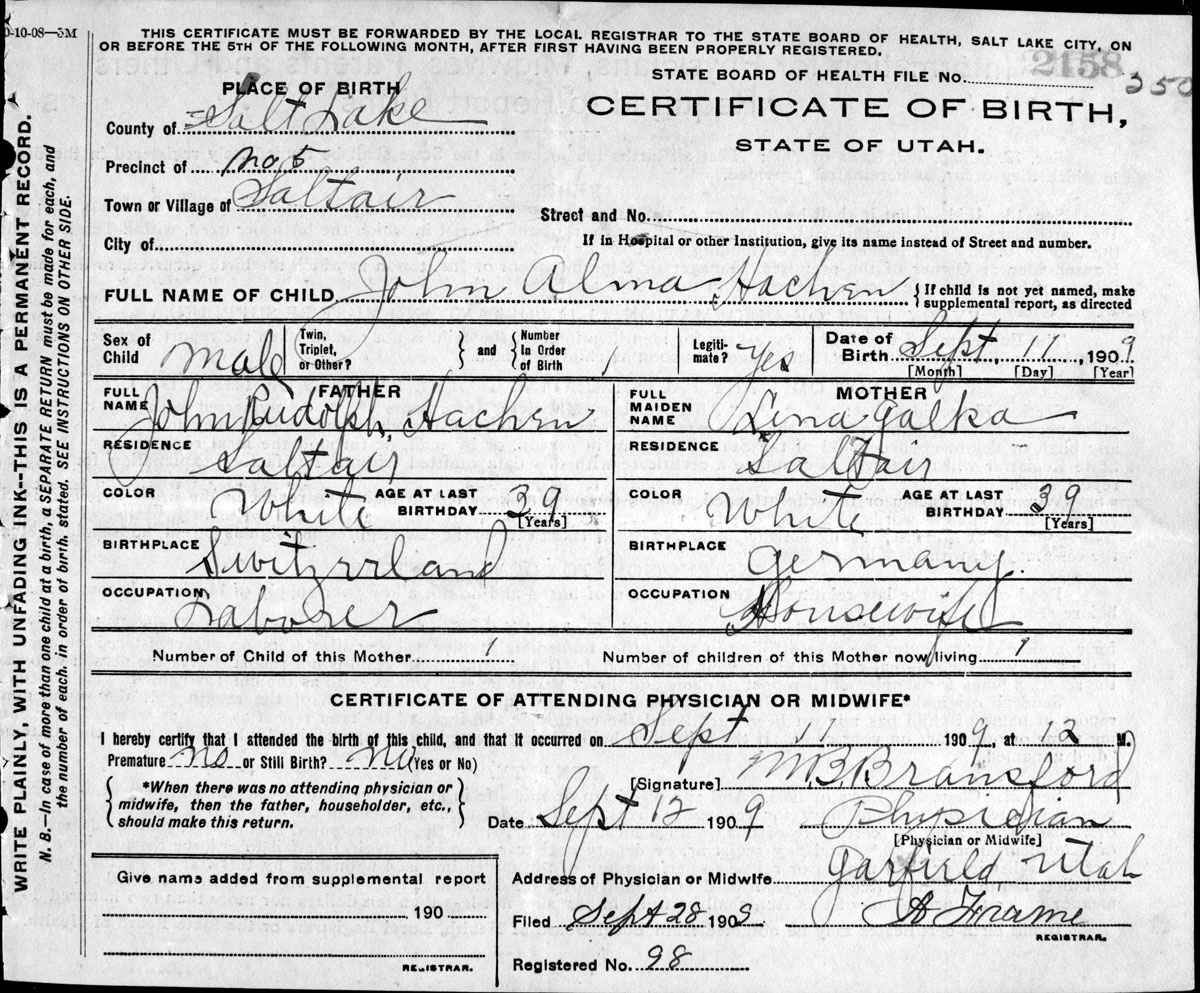 0-10-08—3M
THIS CERTIFICATE MUST BE FORWARDED BY THE LOCAL REGISTRAR TO THE STATE BOARD OF HEALTH, SALT LAKE CITY, ON
OR BEFORE THE 5TH OF THE FOLLOWING MONTH, AFTER FIRST HAVING BEEN PROPERLY REGISTERED.
STATE BOARD OF HEALTH FILE No. 2158
250
PLACE OF BIRTH
CERTIFICATE OF BIRTH,
STATE OF UTAH.
County of Salt Lake
Precinct of No 5
Town or Village of Saltair
Street and No.
City of
If in Hospital or other Institution, give its name instead of Street and number.
FULL NAME OF CHILD John Alma Hachen {If child is not yet named, make
supplemental report, as directed
Sex of Child Male
{Twin, Triplet, or Other? } and {Number In Order of Birth 1
Legiti-mate? Yes
Date of Birth Sept. 11 1909
[Month] [Day] [Year]
FATHER
FULL NAME John Rudolph Hachen
RESIDENCE Saltair
COLOR White AGE AT LAST BIRTHDAY 39
[Years]
BIRTHPLACE Switzrrland
OCCUPATION Laborer
MOTHER
FULL MAIDEN NAME Lina Galka
RESIDENCE Saltair
COLOR White AGE AT LAST BIRTHDAY 39
[Years]
BIRTHPLACE Germany.
OCCUPATION Housewife
Number of Child of this Mother 1 Number of children of this Mother now living 1
CERTIFICATE OF ATTENDING PHYSICIAN OR MIDWIFE*
I hereby certify that I attended the birth of this child, and that it occurred on Sept 11 1909, at 12 M.
Premature No or Still Birth? No (Yes or No)
{*When there was no attending physician or
midwife, then the father, householder, etc.,
should make this return.}
[Signature] M B Bransford
Date Sept 12 1909 Physician
[Physician or Midwife]
Address of Physician or Midwife Garfield Utah
Filed Sept 28 1909
REGISTRAR.
Registered No. 98
Give name added from supplemental report
190
REGISTRAR.
WRITE PLAINLY, WITH UNFADING INK--THIS IS A PERMANENT RECORD.
N. B.—In case of more than one child at a birth, a SEPARATE RETURN must be made for each, and
the number of each. in order of birth. stated. SEE INSTRUCTIONS ON OTHER SIDE.